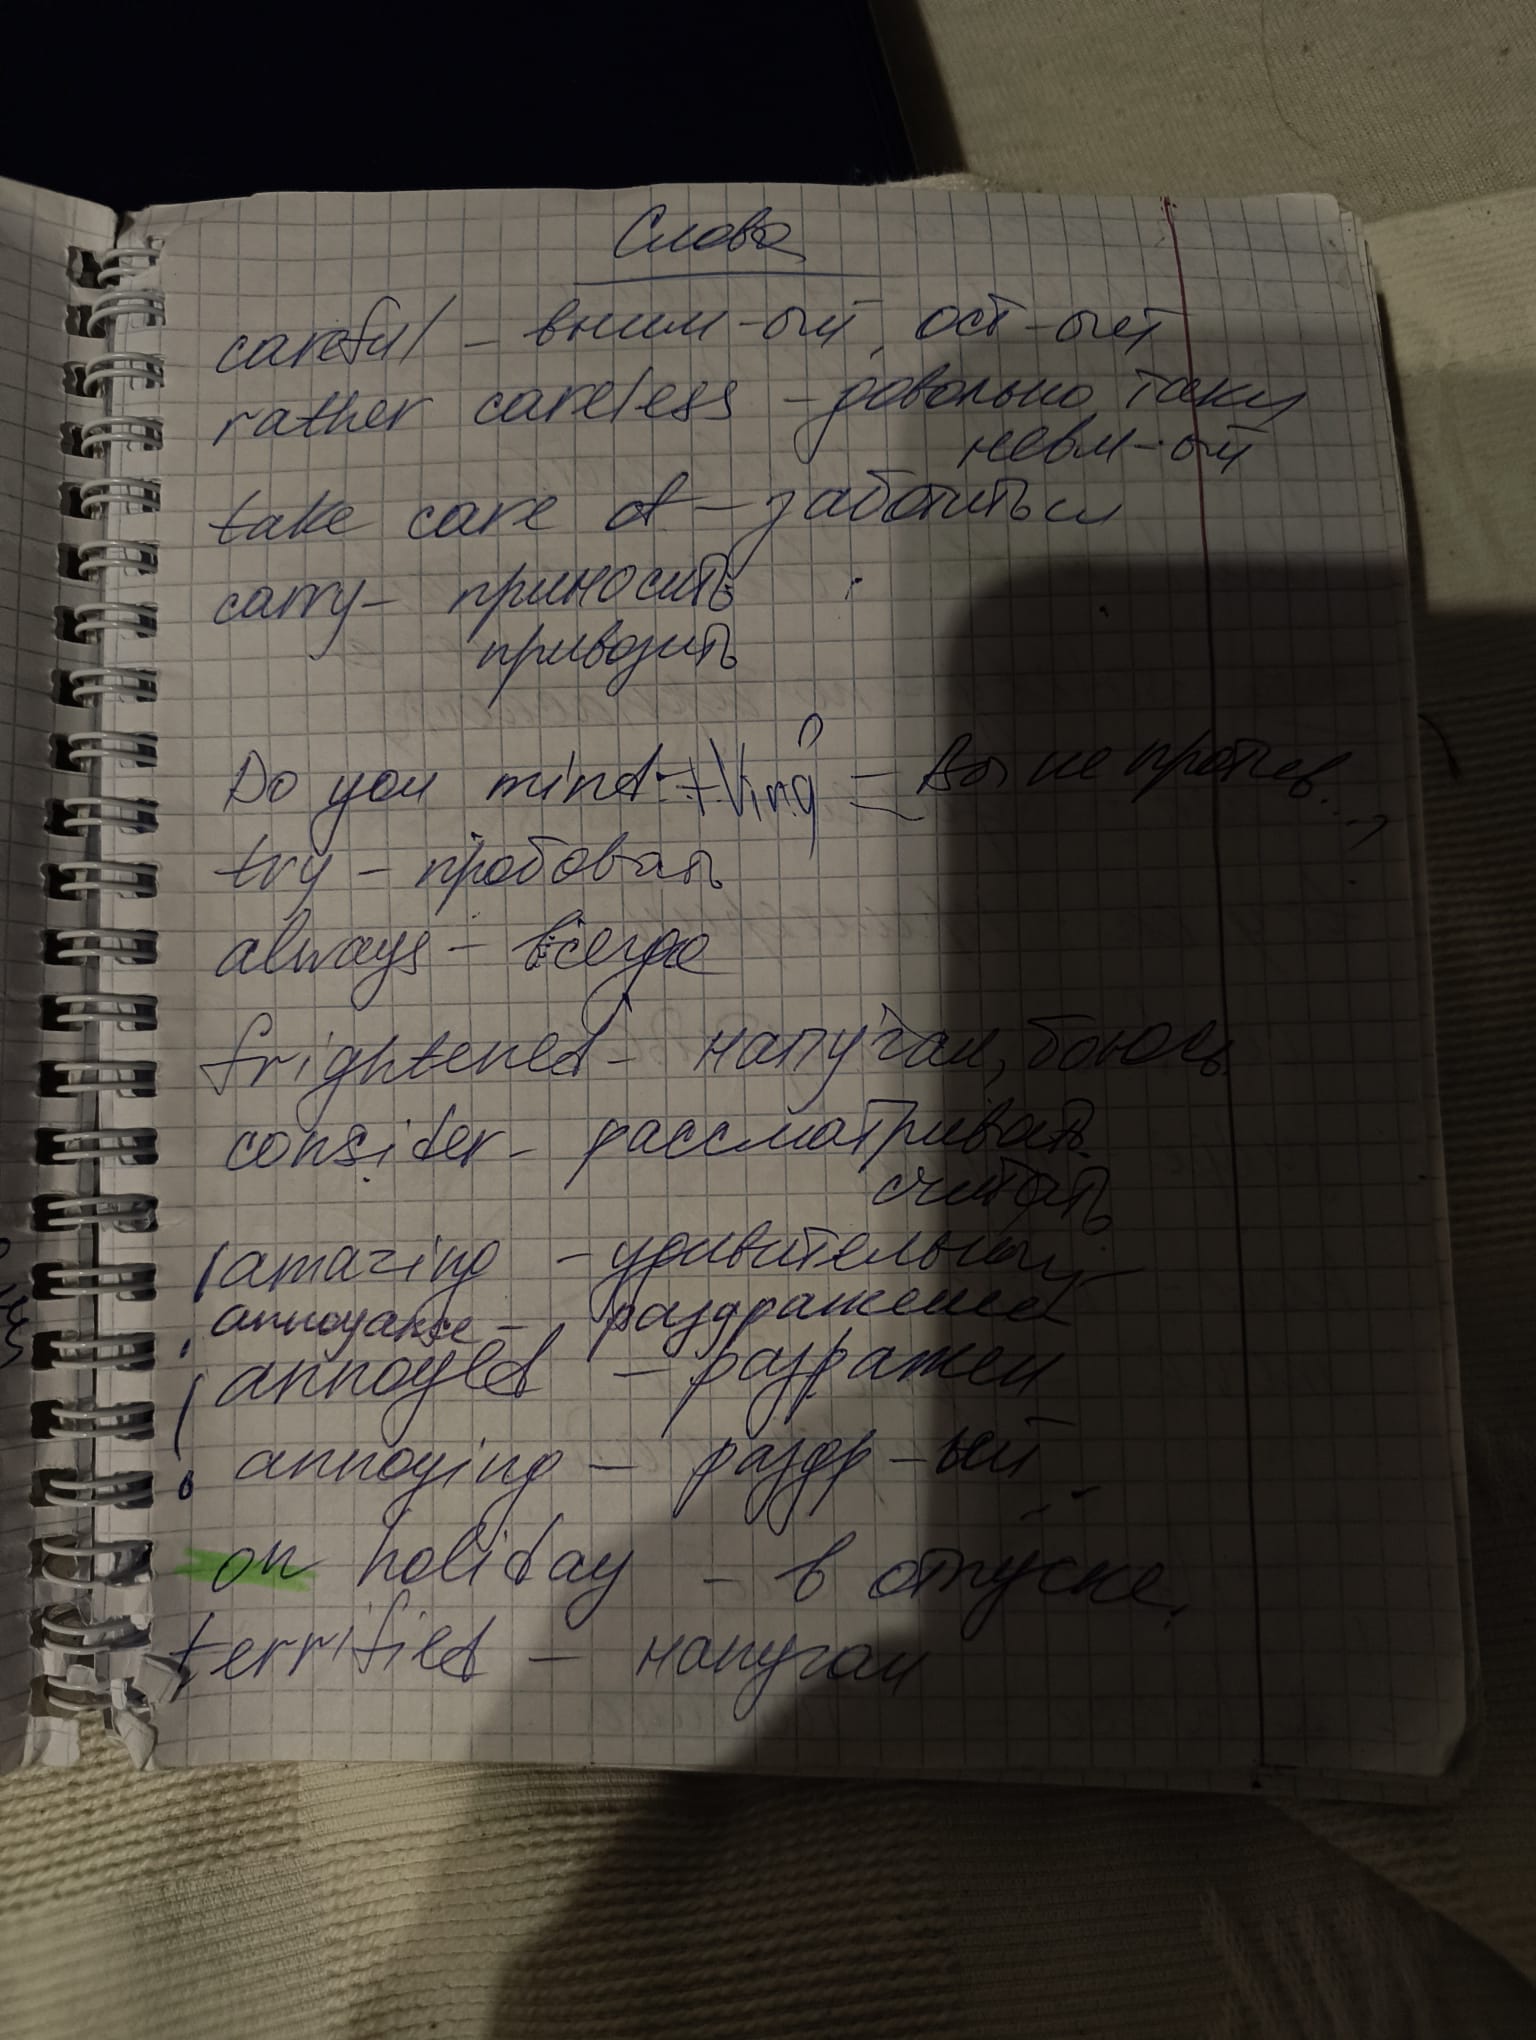 Слова
careful – вним-ый, ост-ый
rather careless – довольно таки
невм-ый
take care of – заботиться
carry – приносить
привозить
Do you mind + Ving = Вы не против...?
try – пробовать
always – всегда
frightened – напуган, боюсь
consider – рассматривать
считать
amazing – удивительный
annoyance – раздражение
annoyed – разражен
annoying – раздр-ый
on holiday – в отпуске
terrified – напуган